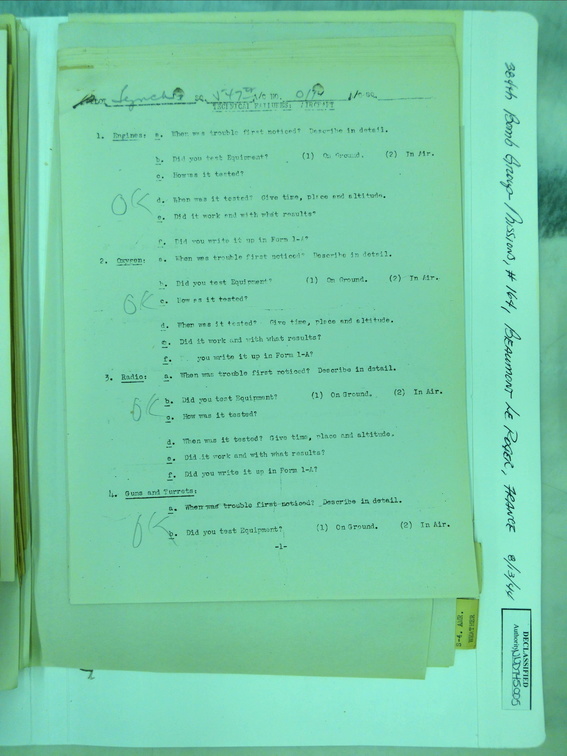 Lynch
TECHNICAL FAILURES: AIRCRAFT
1. Engines: a. When was trouble first noticed? Describe in detail.
b. Did you test Equipment? (1) On Ground. (2) In Air.
c. How was it tested?
OK
d. When was it tested? Give time, place and altitude.
e. Did it work and with what results?
f. Did you write it up in Form 1-A?
2. Oxygen: a. When was trouble first noticed? Describe in detail.
b. Did you test Equipment? (1) On Ground. (2) In Air.
OK
c. How was it tested?
d. When was it tested? Give time, place and altitude.
e. Did it work and with what results?
f. you write it up in Form 1-A?
3. Radio: a. When was trouble first noticed? Describe in detail.
OK
b. Did you test Equipment? (1) On Ground. (2) In Air.
c. How was it tested?
d. When was it tested? Give time, place and altitude.
e. Did it work and with what results?
f. Did you write it up in Form 1-A?
4. Guns and Turrets:
a. When was trouble first noticed? Describe in detail.
OK
b. Did you test Equipment? (1) On Ground. (2) In Air.
-1-
384th Bomb Group-Missions, #164, BEAUMONT LE ROGER, FRANCE 8/13/44
DECLASSIFIED
Authority NND745005
WEATHER